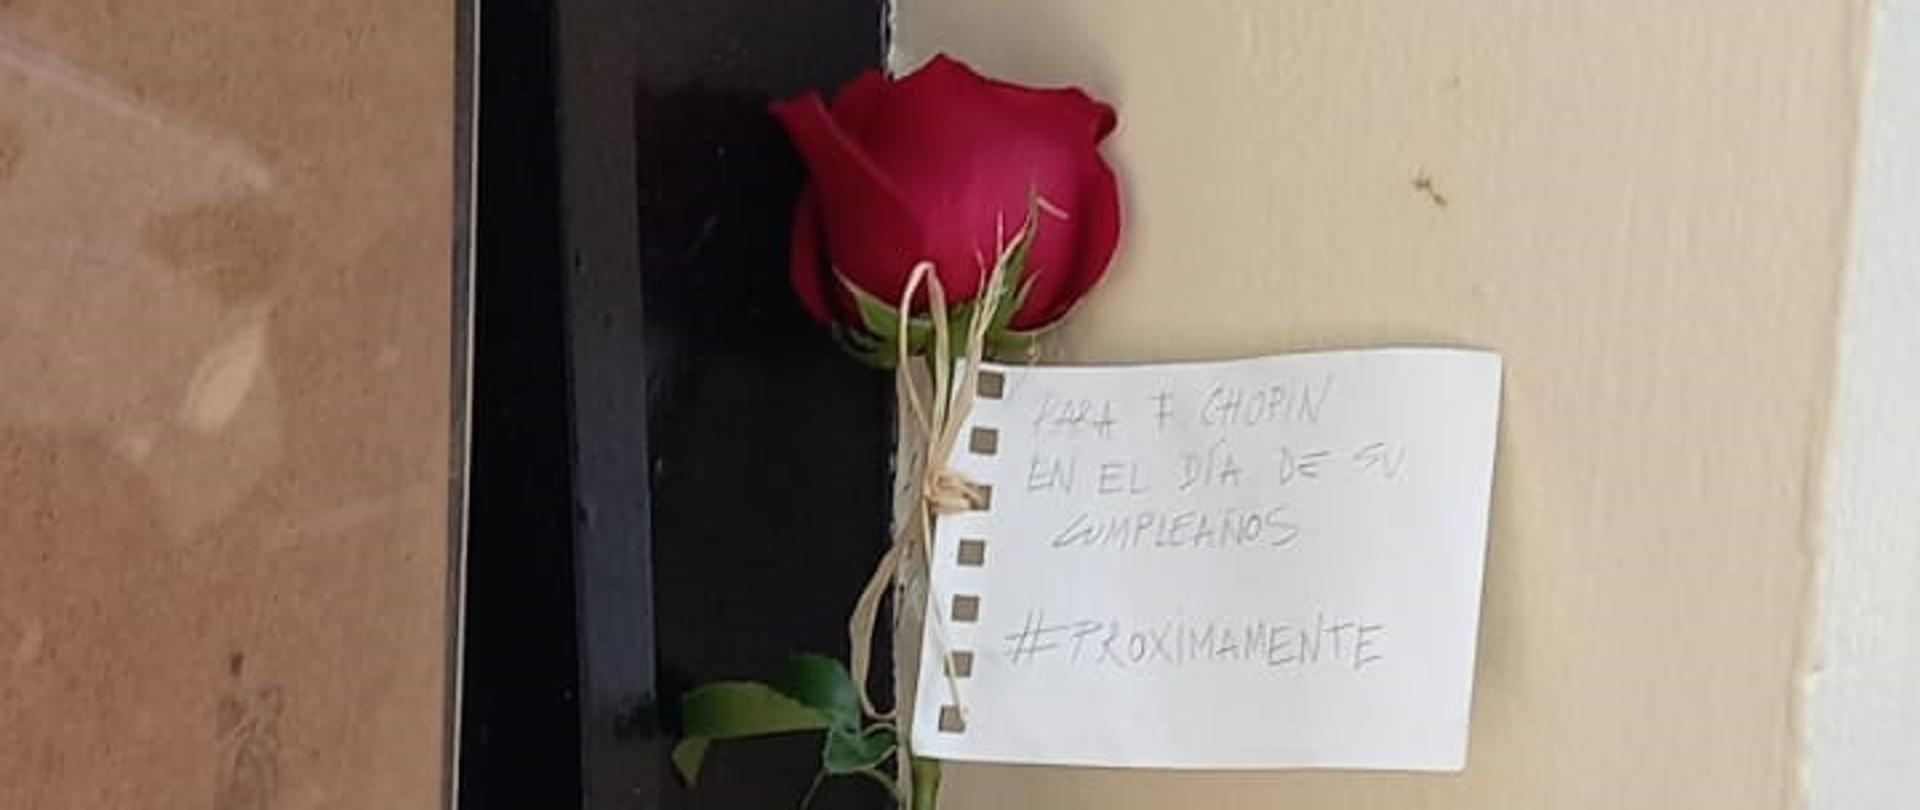 PARA F. CHOPIN
EN EL DÍA DE SU
CUMPLEAÑOS
#PROXIMAMENTE